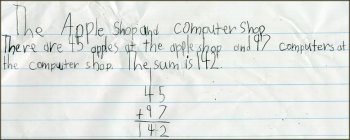 The Apple Shop and computer shop
There are 45 apples at the apple shop and 97 computers at
the computer shop. The sum is 142.
1
45
+97
142